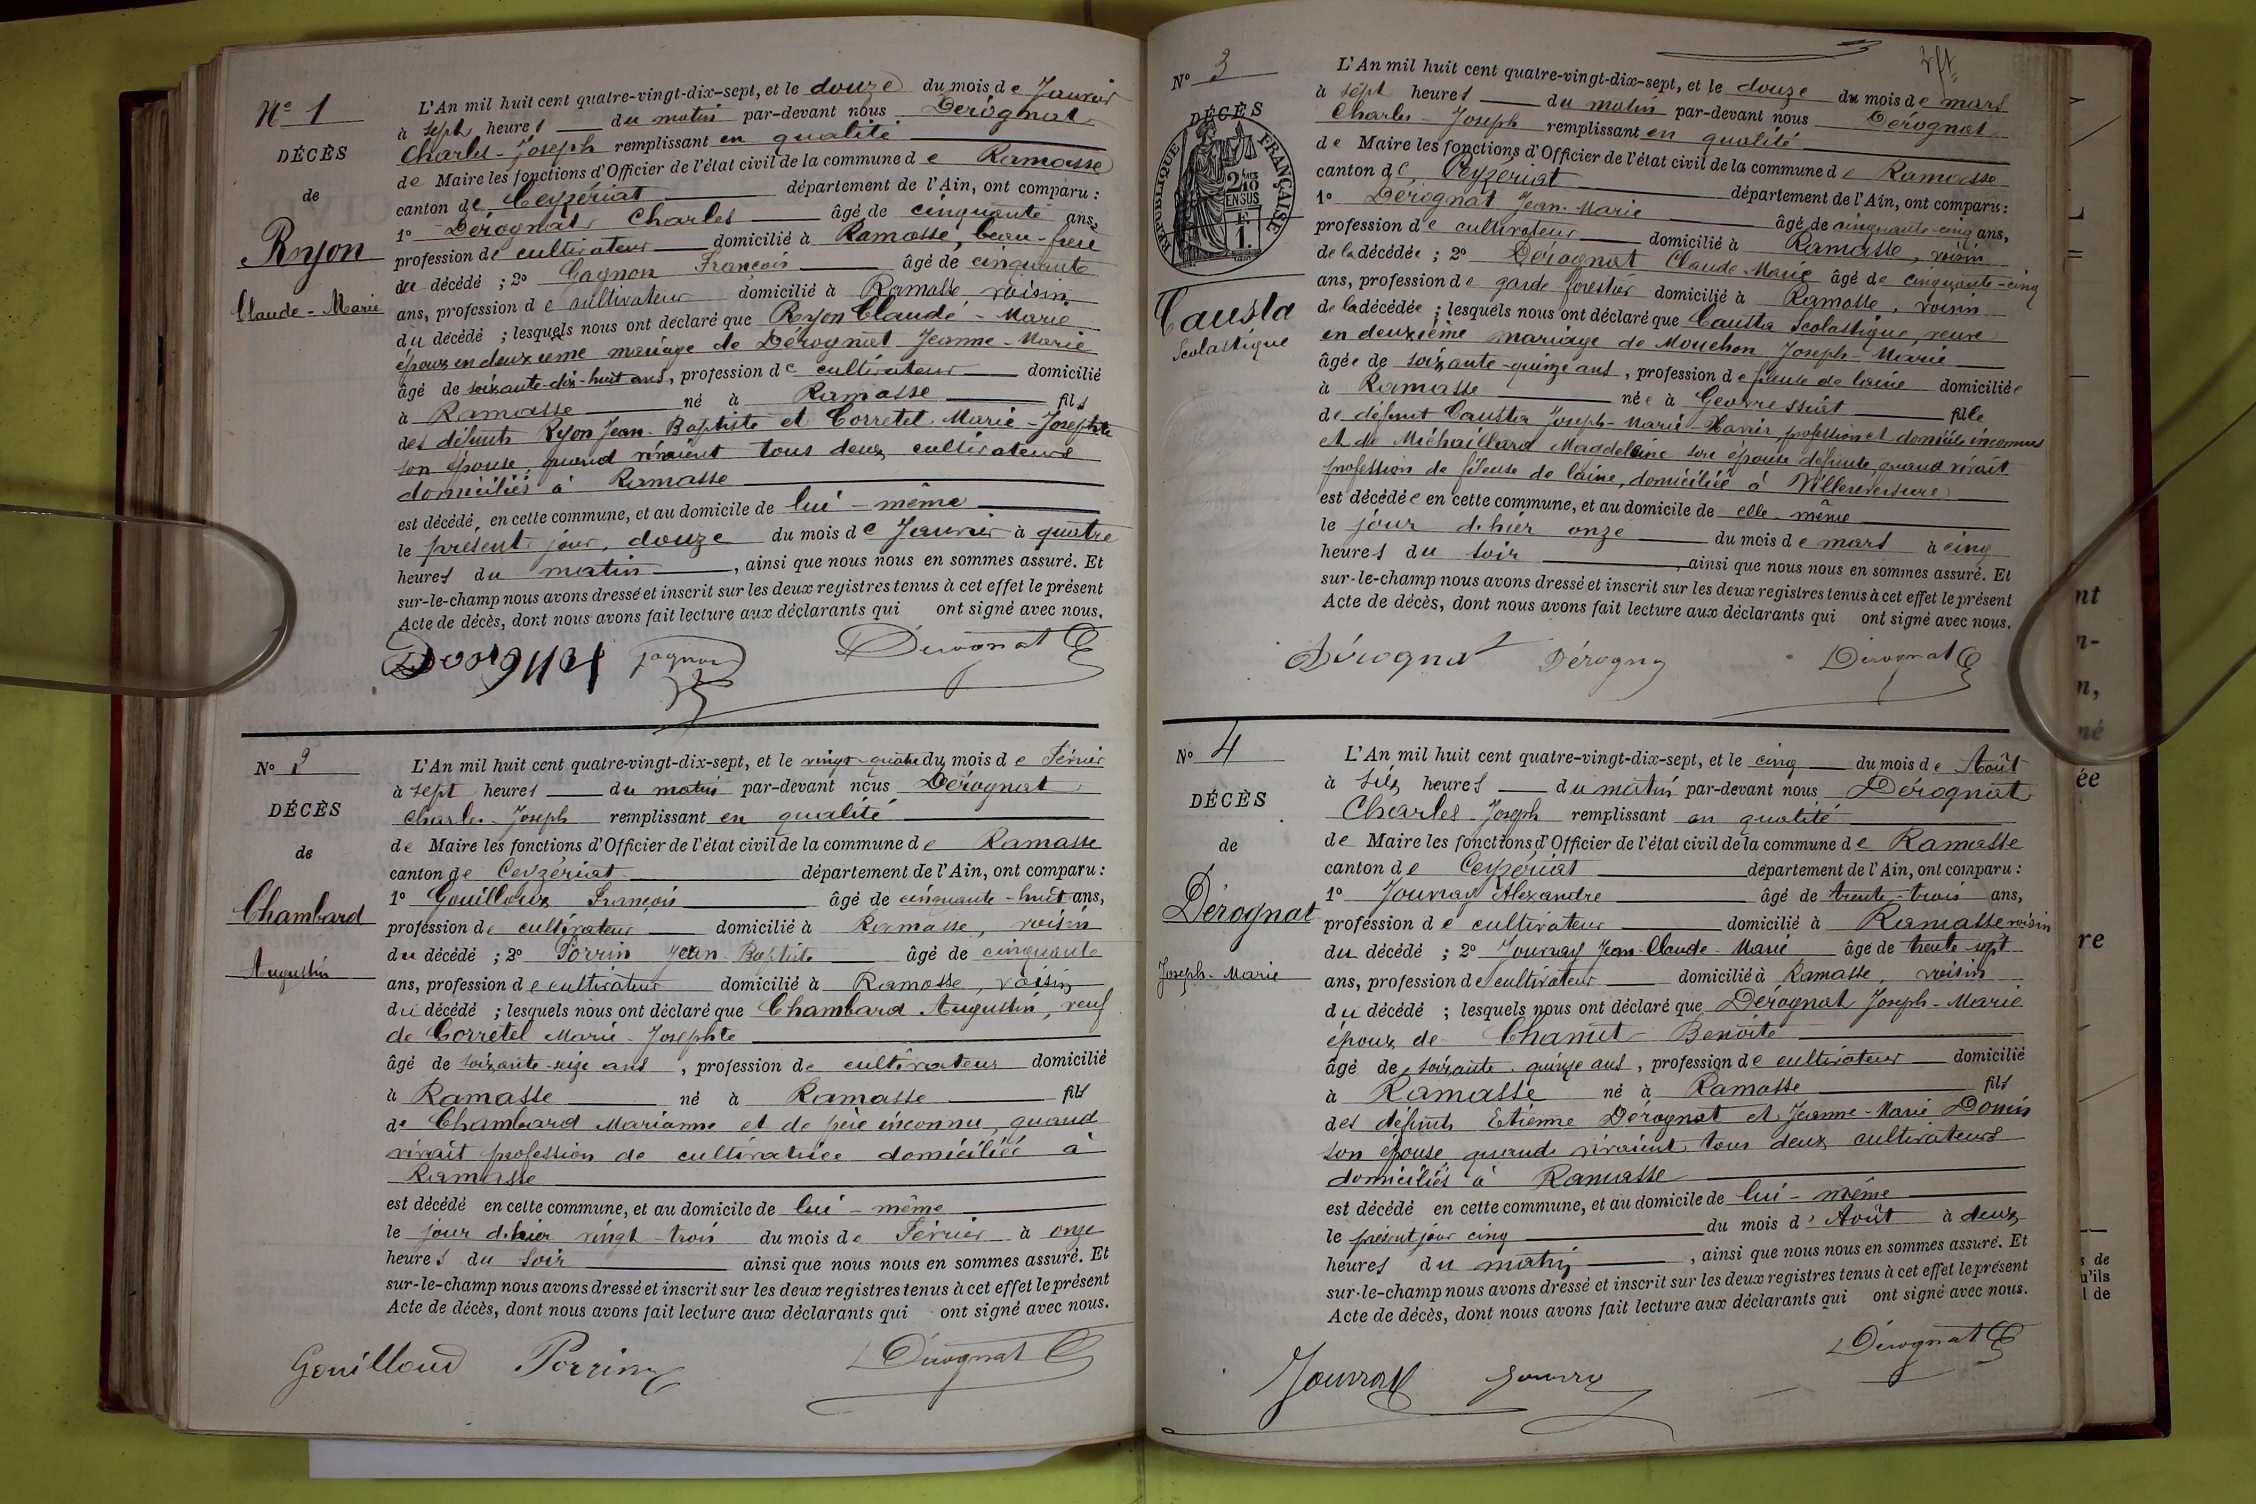 Nº 1
DÉCÈS
de
Ryon
Claude-Marie
L'An mil huit cent quatre-vingt-dix-sept, et le douze du mois de Janvier
à sept heures du matin par-devant nous Dérognat
Charles-Joseph remplissant en qualité
de Maire les fonctions d'Officier de l'état civil de la commune de Ramasse
canton de Ceyzériat département de l'Ain, ont comparu :
1º Dérognat Charles âgé de cinquante ans,
profession de cultivateur domicilié à Ramasse, beau-frère
du décédé ; 2º Gagnon François âgé de cinquante
ans, profession de cultivateur domicilié à Ramasse, voisin
du décédé ; lesquels nous ont déclaré que Ryon Claude-Marie
époux en deuxième mariage de Dérognat Jeanne-Marie
âgé de soixante-dix-huit ans, profession de cultivateur domicilié
à Ramasse né à Ramasse fils
des défunts Ryon Jean-Baptiste et Corretel Marie-Josephte
son épouse, quand vivaient tous deux cultivateurs
domiciliés à Ramasse
est décédé en cette commune, et au domicile de lui-même
le présent jour, douze du mois de Janvier à quatre
heures du matin, ainsi que nous nous en sommes assuré. Et
sur-le-champ nous avons dressé et inscrit sur les deux registres tenus à cet effet le présent
Acte de décès, dont nous avons fait lecture aux déclarants qui ont signé avec nous.
Dérognat Gagnon Dérognat C
Nº 2
DÉCÈS
de
Chambard
Augustin
L'An mil huit cent quatre-vingt-dix-sept, et le vingt-quatre du mois de Février
à sept heures du matin par-devant nous Dérognat
Charles-Joseph remplissant en qualité
de Maire les fonctions d'Officier de l'état civil de la commune de Ramasse
canton de Ceyzériat département de l'Ain, ont comparu :
1º Gouilloux François âgé de cinquante-huit ans,
profession de cultivateur domicilié à Ramasse, voisin
du décédé ; 2º Porrin Jean-Baptiste âgé de cinquante
ans, profession de cultivateur domicilié à Ramasse, voisin
du décédé ; lesquels nous ont déclaré que Chambard Augustin, veuf
de Corretel Marie-Josephte
âgé de soixante-seize ans, profession de cultivateur domicilié
à Ramasse né à Ramasse fils
de Chambard Marianne et de père inconnu, quand
vivait profession de cultivatrice domiciliée à
Ramasse
est décédé en cette commune, et au domicile de lui-même
le jour d'hier vingt-trois du mois de Février à onze
heures du soir ainsi que nous nous en sommes assuré. Et
sur-le-champ nous avons dressé et inscrit sur les deux registres tenus à cet effet le présent
Acte de décès, dont nous avons fait lecture aux déclarants qui ont signé avec nous.
Gouilloud Porrin Dérognat C
Nº 3
DÉCÈS
RÉPUBLIQUE FRANÇAISE
2/10 EN SUS
F. 1.
Causta
Scolastique
L'An mil huit cent quatre-vingt-dix-sept, et le douze du mois de mars
à sept heures du matin par-devant nous Dérognat
Charles-Joseph remplissant en qualité
de Maire les fonctions d'Officier de l'état civil de la commune de Ramasse
canton de Ceyzériat département de l'Ain, ont comparu :
1º Dérognat Jean-Marie âgé de cinquante-cinq ans,
profession de cultivateur domicilié à Ramasse, voisin
de la décédée ; 2º Dérognat Claude-Marie âgé de cinquante-cinq
ans, profession de garde forestier domicilié à Ramasse, voisin
de la décédée ; lesquels nous ont déclaré que Causta Scolastique, veuve
en deuxième mariage de Mouchon Joseph-Marie
âgée de soixante-quinze ans, profession de fileuse de laine domiciliée
à Ramasse née à Gevressiat fille
de défunt Causta Joseph-Marie-Xavier, profession et domicile inconnus
et de Michaillard Magdeleine son épouse défunte, quand vivait
profession de fileuse de laine, domiciliée à Villereversure
est décédée en cette commune, et au domicile de elle-même
le jour d'hier onze du mois de mars à cinq
heures du soir, ainsi que nous nous en sommes assuré. Et
sur-le-champ nous avons dressé et inscrit sur les deux registres tenus à cet effet le présent
Acte de décès, dont nous avons fait lecture aux déclarants qui ont signé avec nous.
Dérognat Dérogna Dérognat C
Nº 4
DÉCÈS
de
Dérognat
Joseph-Marie
L'An mil huit cent quatre-vingt-dix-sept, et le cinq du mois de Août
à six heures du matin par-devant nous Dérognat
Charles-Joseph remplissant en qualité
de Maire les fonctions d'Officier de l'état civil de la commune de Ramasse
canton de Ceyzériat département de l'Ain, ont comparu :
1º Jouvray Alexandre âgé de trente-trois ans,
profession de cultivateur domicilié à Ramasse voisin
du décédé ; 2º Jouvray Jean-Claude-Marie âgé de trente-sept
ans, profession de cultivateur domicilié à Ramasse, voisin
du décédé ; lesquels nous ont déclaré que Dérognat Joseph-Marie
époux de Chanut Benoite
âgé de soixante-quinze ans, profession de cultivateur domicilié
à Ramasse né à Ramasse fils
des défunts Etienne Dérognat et Jeanne-Marie Donin
son épouse quand vivaient tous deux cultivateurs
domiciliés à Ramasse
est décédé en cette commune, et au domicile de lui-même
le présent jour cinq du mois d'Août à deux
heures du matin, ainsi que nous nous en sommes assuré. Et
sur-le-champ nous avons dressé et inscrit sur les deux registres tenus à cet effet le présent
Acte de décès, dont nous avons fait lecture aux déclarants qui ont signé avec nous.
Dérognat C
Jouvray Jouvra